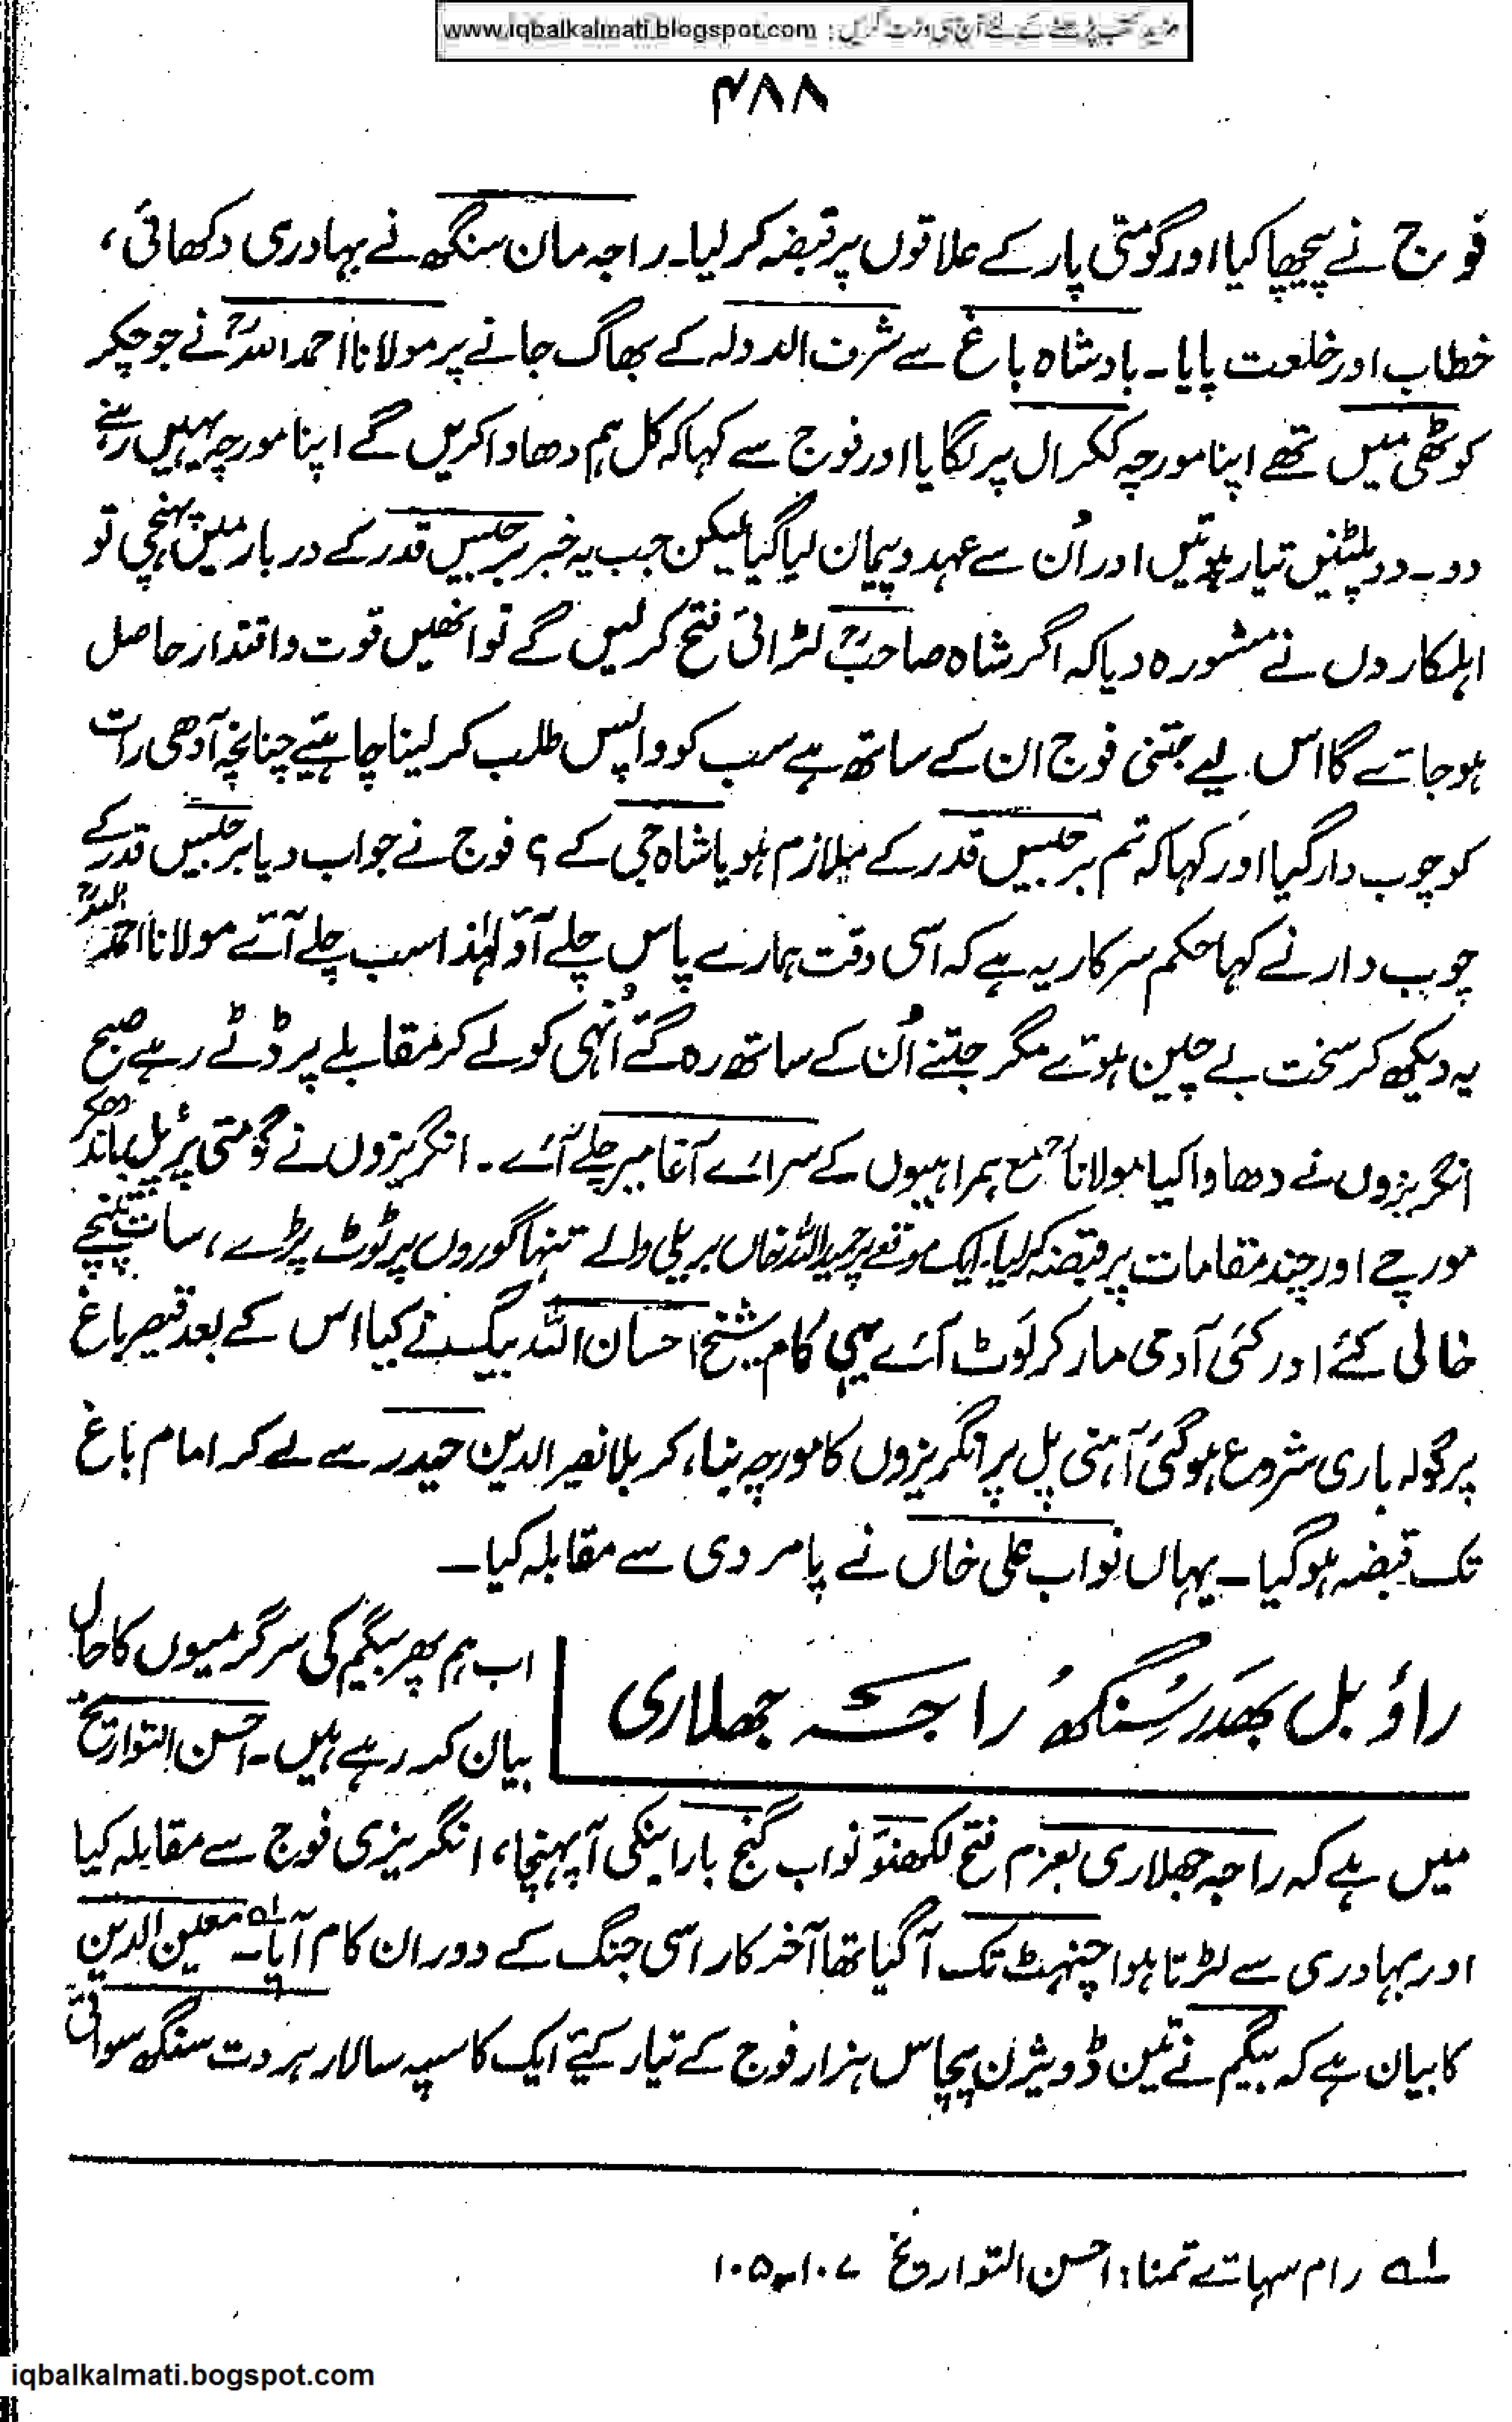 مزید کتب پڑھنے کے لئے آج ہی وزٹ کریں : www.iqbalkalmati.blogspot.com
۴۸۸
فوج نے پیچھا کیا اور گومتی پار کے علاقوں پر قبضہ کر لیا۔ راجہ مان سنگھ نے بہادری دکھائی،
خطاب اور خلعت پایا۔ بادشاہ باغ سے شرف الدولہ کے بھاگ جانے پر مولانا احمد اللہؒ نے جو چکر
کوٹھی میں تھے اپنا مورچہ ککرال پر لگایا اور فوج سے کہا کہ کل ہم دھاوا کریں گے اپنا مورچہ یہیں رہنے
دو۔ دو پلٹنیں تیار ہوئیں اور اُن سے عہد و پیمان لیا گیا لیکن جب یہ خبر برجیس قدر کے دربار میں پہنچی تو
اہلکاروں نے مشورہ دیا کہ اگر شاہ صاحبؒ لڑائی فتح کر لیں گے تو انھیں قوت و اقتدار حاصل
ہو جائے گا اس لیے جتنی فوج ان کے ساتھ ہے سب کو واپس طلب کر لینا چاہیئے چنانچہ آدھی رات
کو چوب دار گیا اور کہا کہ تم برجیس قدر کے ملازم ہو یا شاہ جی کے ؟ فوج نے جواب دیا برجیس قدر کے
چوب دار نے کہا حکم سرکار یہ ہے کہ اسی وقت ہمارے پاس چلے آؤ لہٰذا سب چلے آئے مولانا احمد اللہؒ
یہ دیکھ کر سخت بے چین ہوئے مگر جتنے اُن کے ساتھ رہ گئے اُنہی کو لے کر مقابلے پر ڈٹے رہے صبح
انگریزوں نے دھاوا کیا مولاناؒ مع ہمراہیوں کے سرائے آغا میر چلے آئے۔ انگریزوں نے گومتی پر پُل باندھکر
مورچے اور چند مقامات پر قبضہ کر لیا۔ ایک موقعے پر حمید اللہ خاں بریلی والے تنہا گوروں پر ٹوٹ پڑے، سات تپنچے
خالی کئے اور کئی آدمی مار کر لَوٹ آئے یہی کام شیخ احسان اللہ بیگ نے کیا اس کے بعد قیصر باغ
پر گولہ باری شروع ہو گئی آہنی پل پر انگریزوں کا مورچہ بنا، کربلا نصیر الدین حیدر سے لے کر امام باغ
تک قبضہ ہو گیا۔ یہاں نواب علی خاں نے پامردی سے مقابلہ کیا۔
راؤ بل بھدر سنگھ راجہ جھلاری
اب ہم پھر بیگم کی سرگرمیوں کا حال
بیان کر رہے ہیں۔ احسن التواریخ
میں ہے کہ راجہ جھلاری بعزم فتح لکھنؤ نواب گنج بارا بنکی آ پہنچا، انگریزی فوج سے مقابلہ کیا
اور بہادری سے لڑتا ہوا چنہٹ تک آگیا تھا آخر کار اسی جنگ کے دوران کام آیا۔ لہ معین الدین
کا بیان ہے کہ بیگم نے تین ڈویژن پچاس ہزار فوج کے تیار کیئے ایک کا سپہ سالار ہردت سنگھ سوائی
لہ رام سہائے تمنا: احسن التواریخ ۱۰۷-۱۰۵
iqbalkalmati.bogspot.com